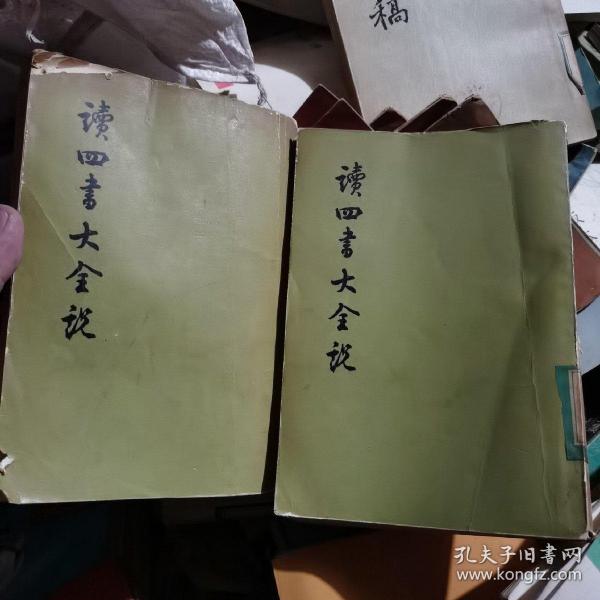 稿
讀四書大全說
讀四書大全說
孔夫子旧书网
www.kongfz.com